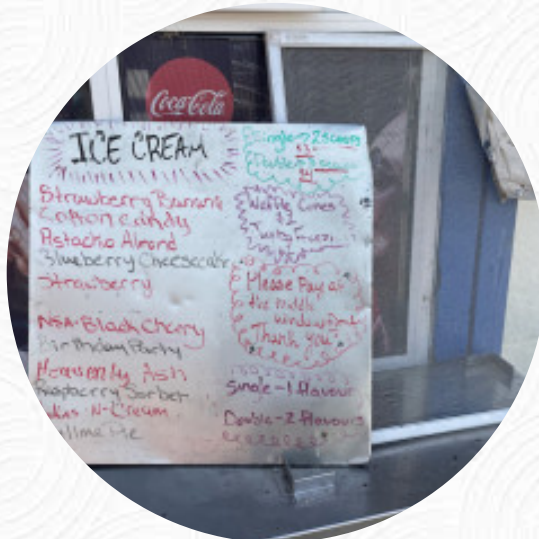 Coca-Cola
ICE CREAM
Strawberry Banana
Cotton candy
Pistachio Almond
Blueberry Cheesecake
Strawberry
NSA-Black Cherry
Birthday Party
Heavenly Ash
Raspberry Sorbet
N-Cream
lime Pie
Single-2 Scoops
Double
Waffle Cones
Please Pay at
the middle
window
Thank you
Single-1 flavour
Double-2 flavours